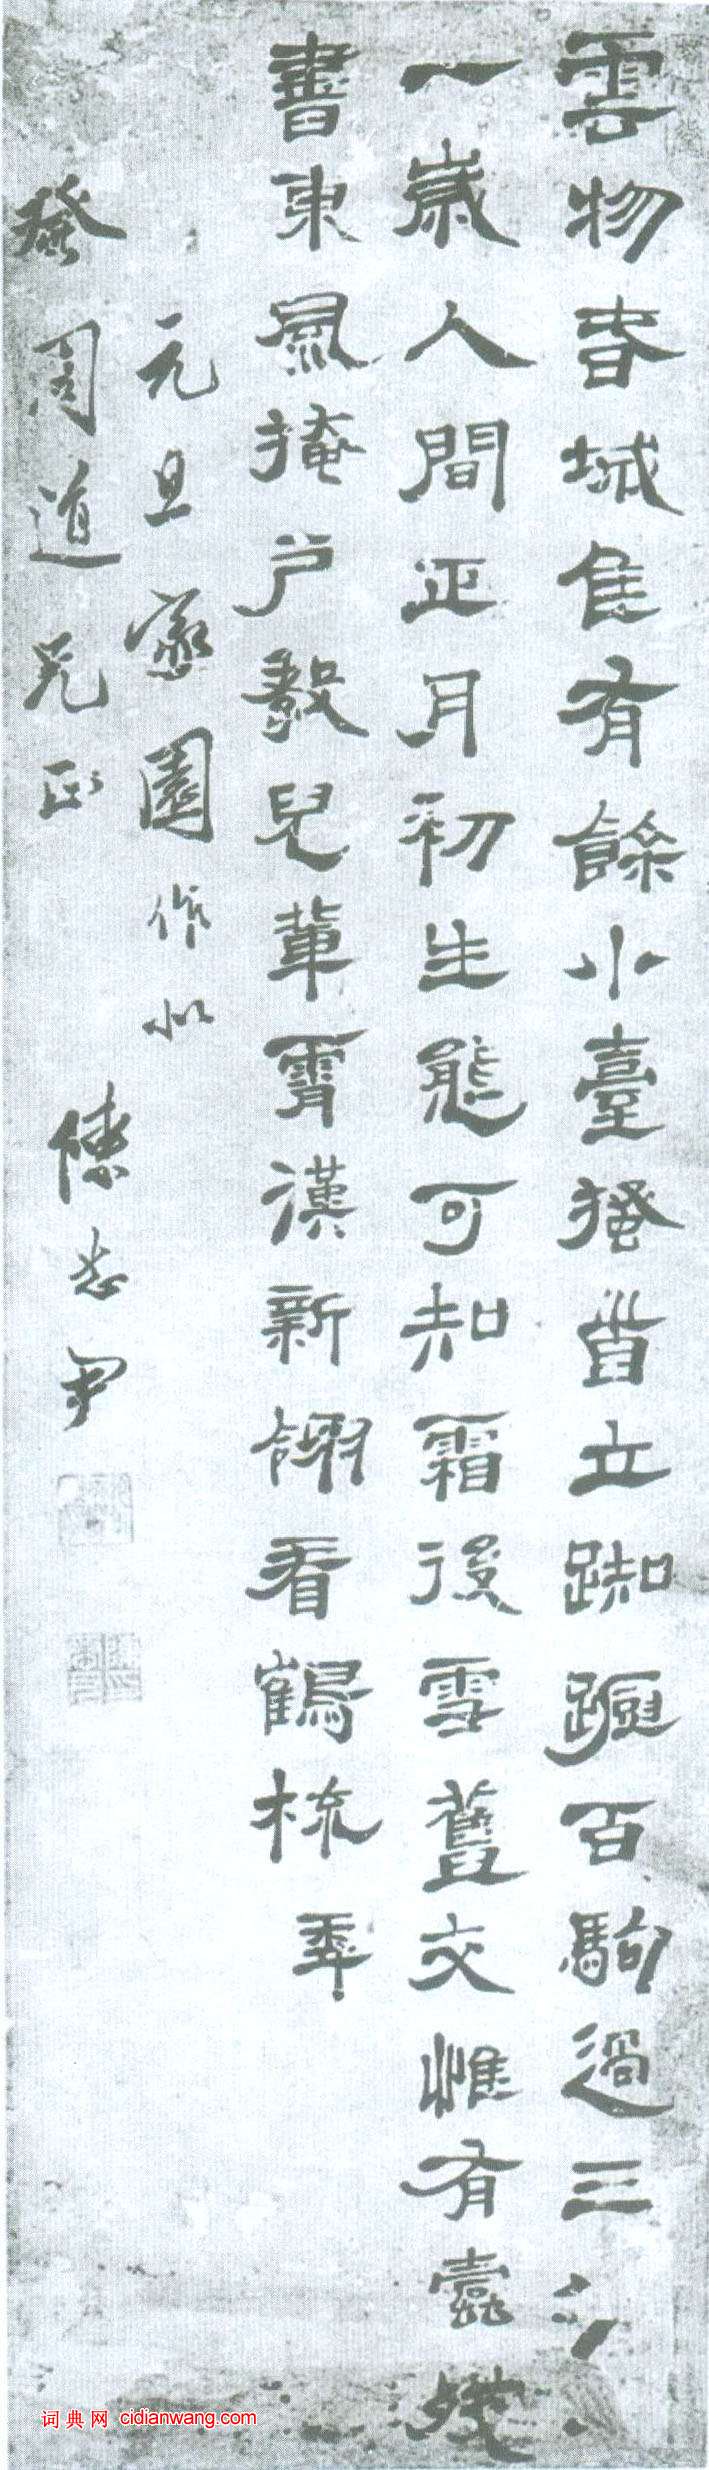 雲物春城佳有餘小臺搔首立踟躕百駒過三
一歲人間正月初生態可知霜後雪舊交惟有蠹殘
書東風掩户教兒輩霄漢新翎看鶴梳 年
元旦家園作似
發周道兄正 陳恭尹
词典网 cidianwang.com